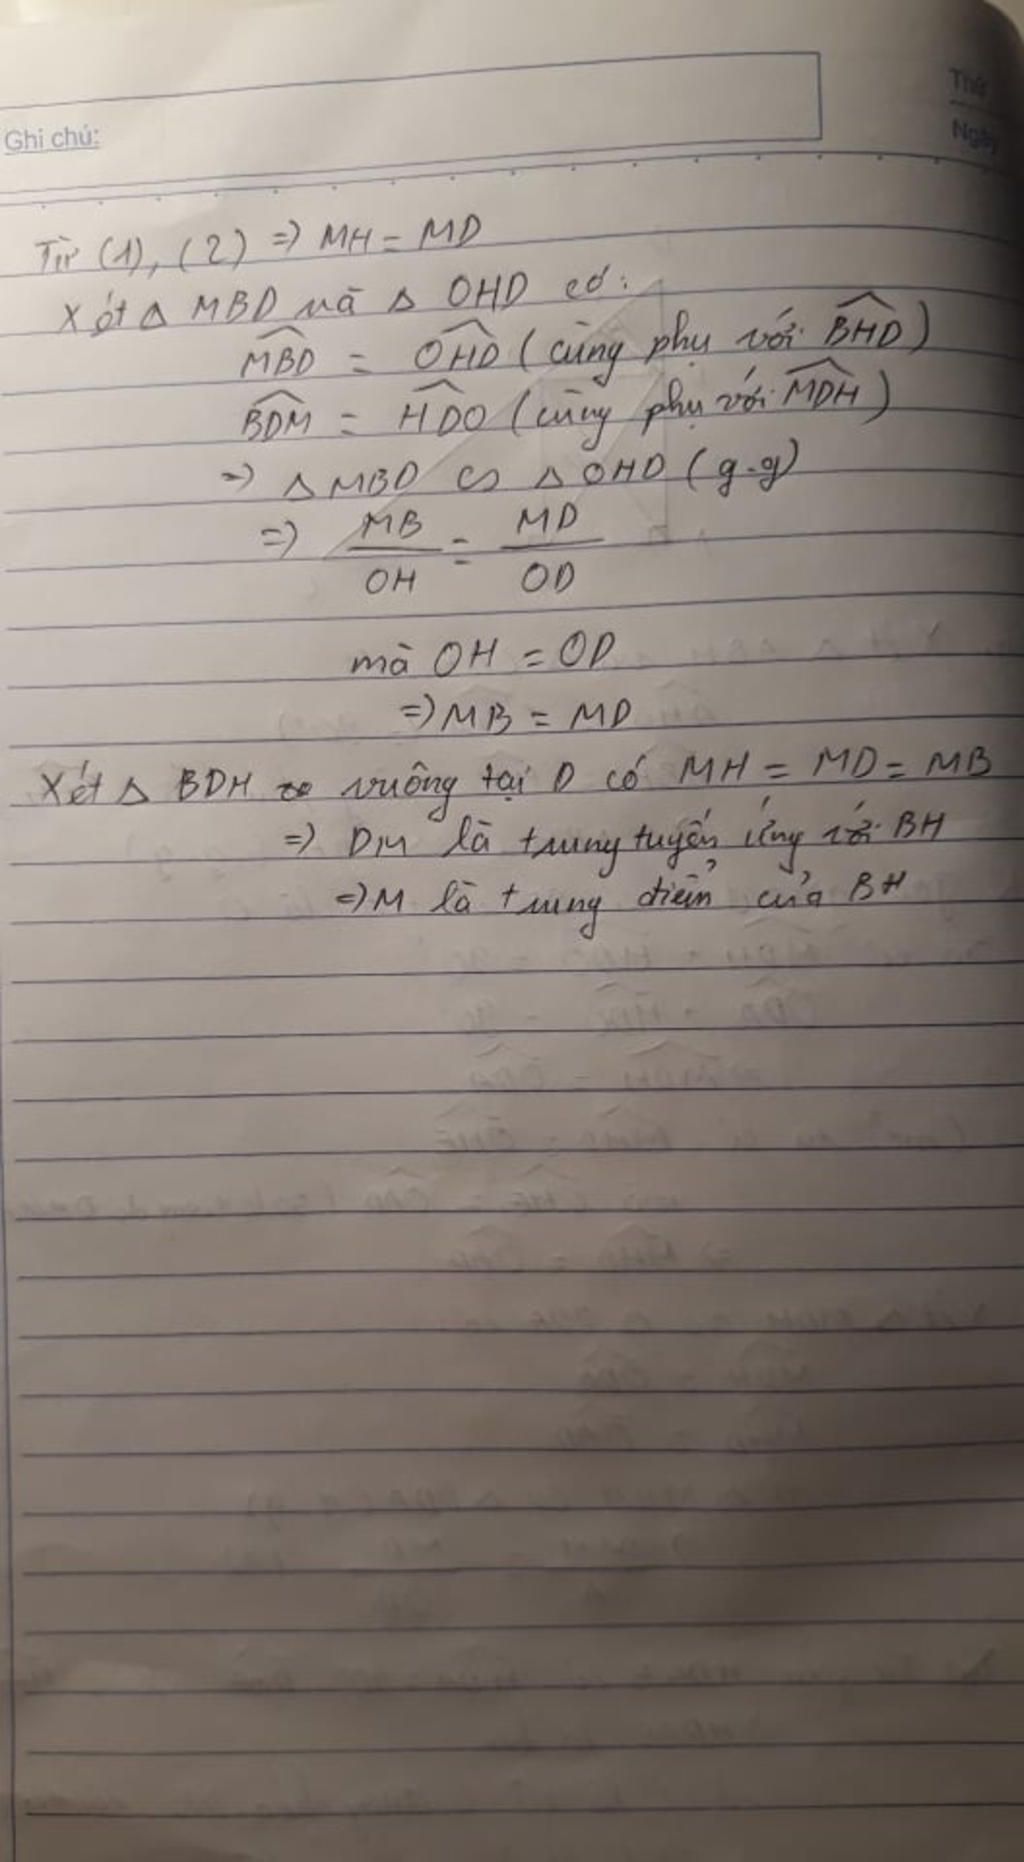 Ghi chú:
Thứ
Ngày
Từ (1), (2) => MH = MD
Xét △ MBD và △ OHD có:
\widehat{MBD} = \widehat{OHD} (cùng phụ với \widehat{BHD})
\widehat{BDM} = \widehat{HDO} (cùng phụ với \widehat{MDH})
=> △ MBD ∽ △ OHD (g-g)
=> \frac{MB}{OH} = \frac{MD}{OD}
mà OH = OD
=> MB = MD
Xét △ BDH vuông tại D có MH = MD = MB
=> DM là trung tuyến ứng với BH
=> M là trung điểm của BH